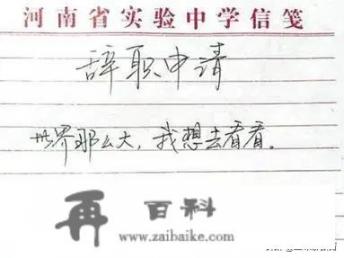 河南省实验中学信笺
辞职申请
世界那么大，我想去看看。
再 百科
www.zaibaike.com